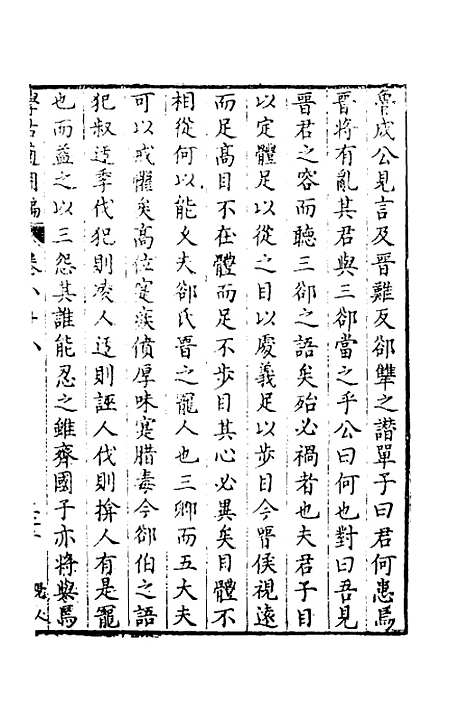 魯成公見言及晉難及郤犨之譖單子曰君何患焉
晉將有亂其君與三郤當之乎公曰何也對曰吾見
晉君之容而聽三郤之語矣殆必禍者也夫君子目
以定體足以從之目以處義足以步目今晉侯視遠
而足高目不在體而足不步目其心必異矣目體不
相從何以能乂夫郤氏晉之寵人也三卿而五大夫
可以戒懼矣高位寔疾僨厚味寔腊毒今郤伯之語
犯叔迂季伐犯則凌人迂則誣人伐則揜人有是寵
也而益之以三怨其誰能忍之雖齊國子亦將與焉
學古適用編 卷八十八